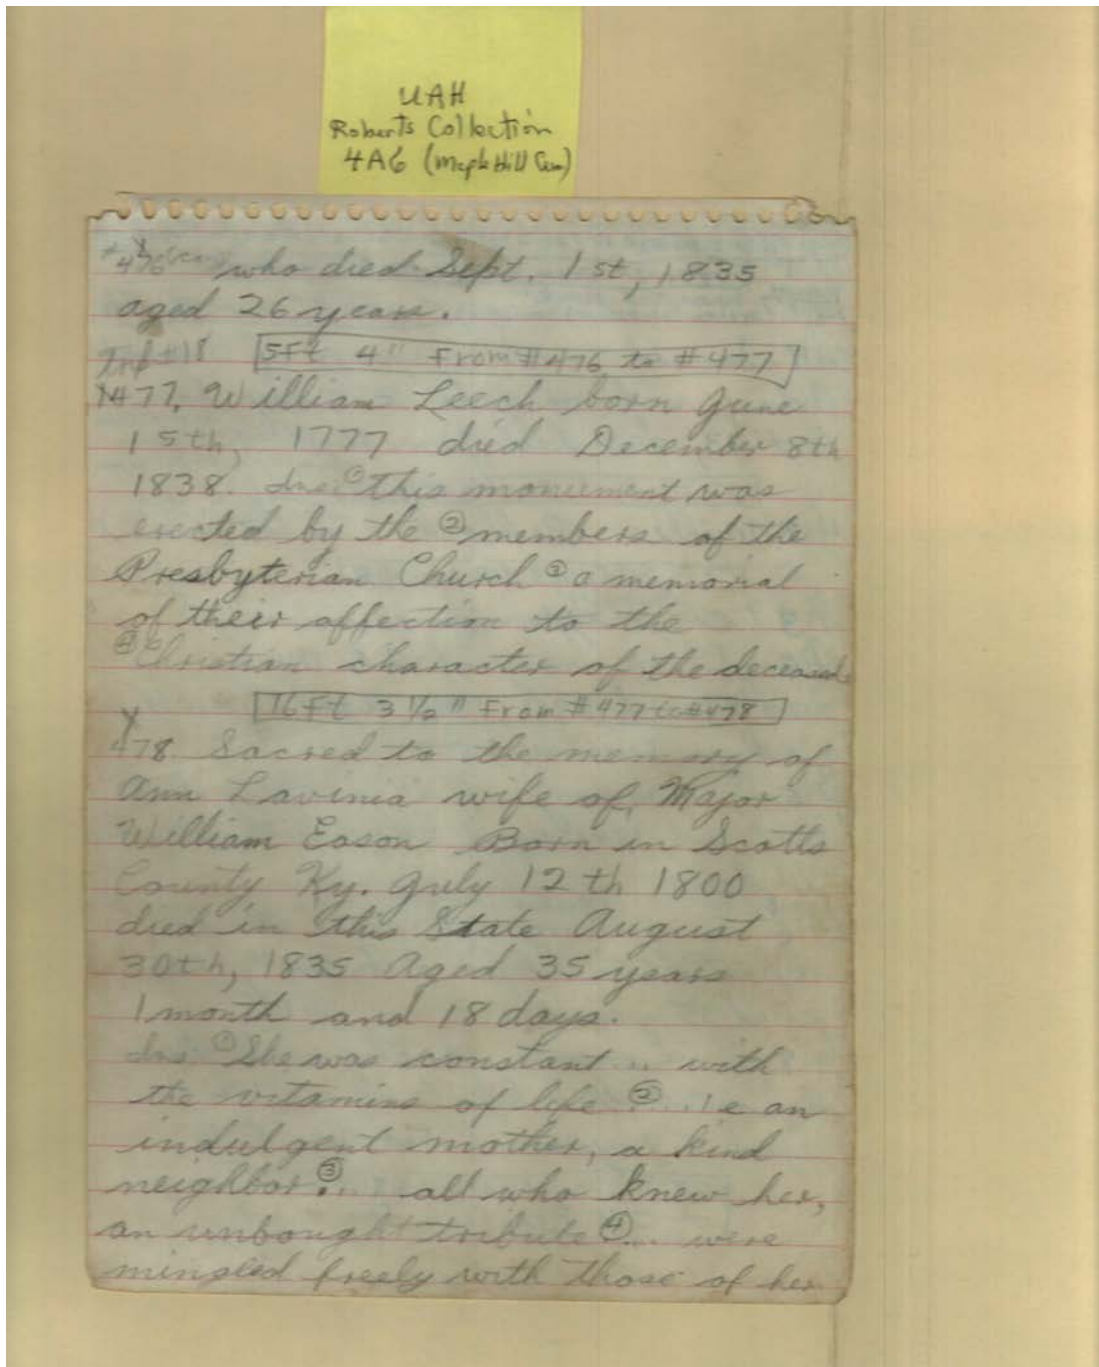 UAH
Roberts Collection
4A6 (Maple Hill Cem)
#476 who died Sept. 1st, 1835
aged 26 years.
5Ft 4" From #476 to #477
#477, William Leech born June
15th, 1777 died December 8th
1838. Ins. ① this monument was
erected by the ② members of the
Presbyterian Church ③ a memorial
of their affection to the
④ Christian character of the deceased
16Ft 3 1/2" From #477 to #478
478. Sacred to the memory of
Ann Lavinia wife of, Major
William Eason Born in Scotts
County Ky. July 12th 1800
died in this State August
30th, 1835 Aged 35 years
1 month and 18 days.
Ins ① She was constant ... with
the vitamins of life ② ... e an
indulgent mother, a kind
neighbor ③ ... all who knew her,
an unbought tribute ④ ... were
mingled freely with those of her